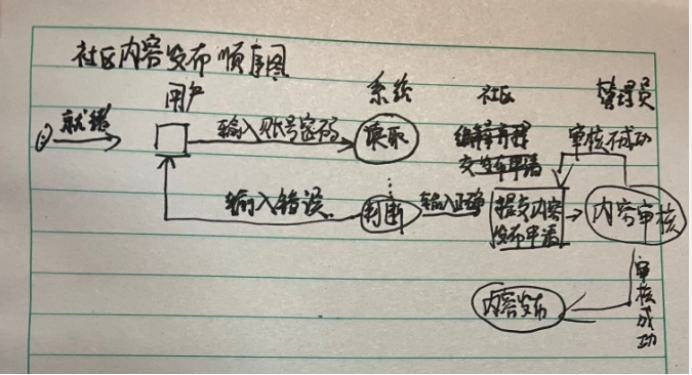 社区内容发布顺序图
用户
系统
社区
管理员
就绪
输入账号密码
读取
编辑并提
交发布申请
审核不成功
输入错误
判断
输入正确
提交内容
发布申请
内容审核
内容发布
审核成功